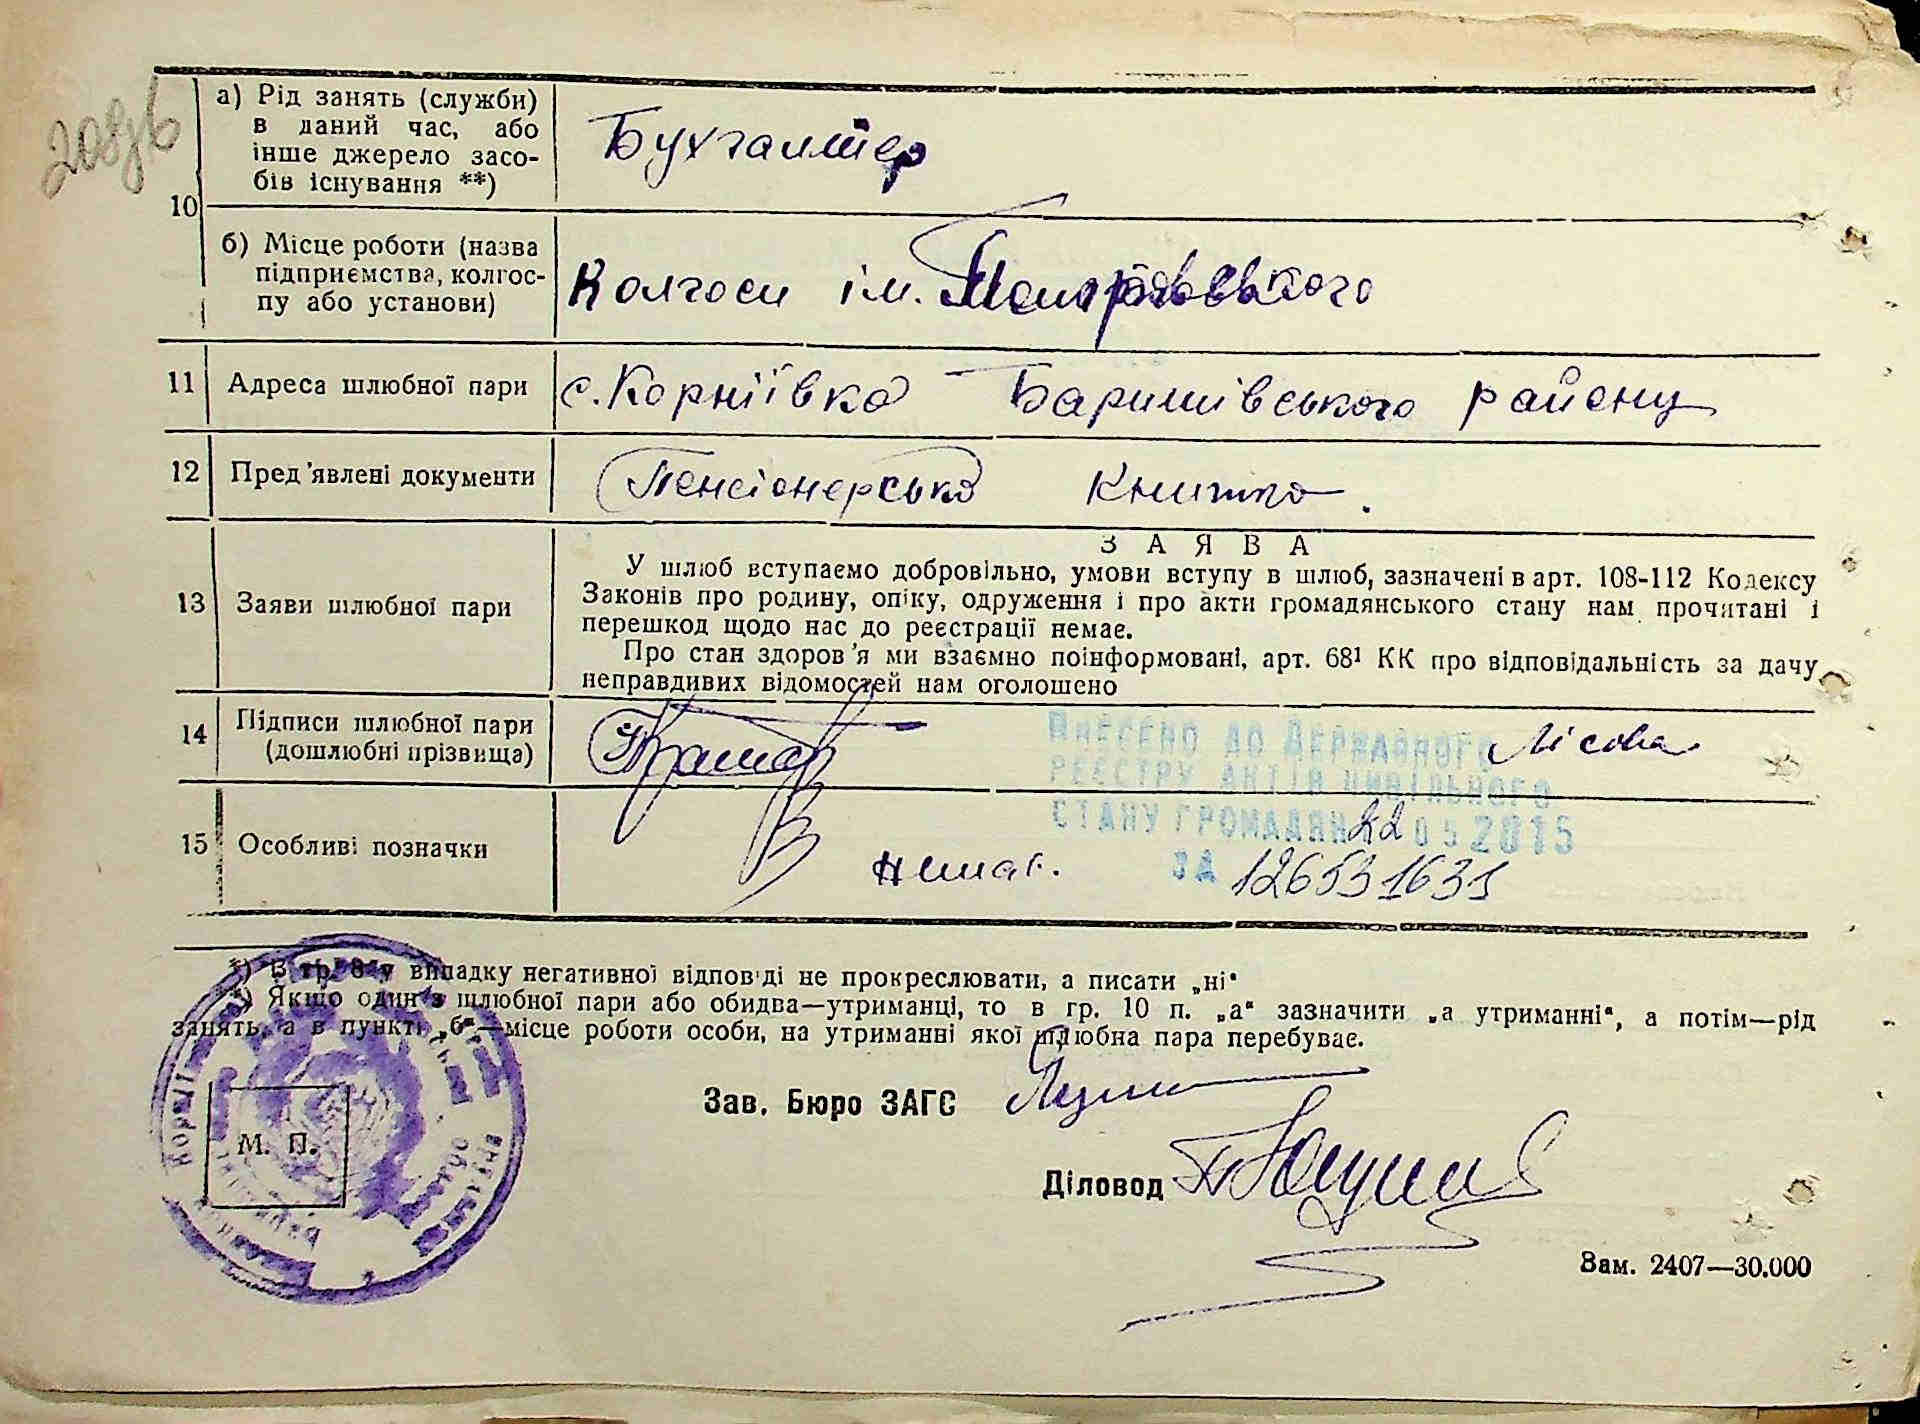 208зв
а) Рід занять (служби)
в даний час, або
інше джерело засо-
бів існування **)
Бухгалтер
10
б) Місце роботи (назва
підприємства, колгос-
пу або установи)
Колгосп ім.
11 Адреса шлюбної пари с. Корніївка Баришівського району
12 Пред'явлені документи Пенсіонерська книжка.
13 Заяви шлюбної пари
ЗАЯВА
У шлюб вступаємо добровільно, умови вступу в шлюб, зазначені в арт. 108-112 Кодексу
Законів про родину, опіку, одруження і про акти громадянського стану нам прочитані і
перешкод щодо нас до реєстрації немає.
Про стан здоров'я ми взаємно поінформовані, арт. 68¹ КК про відповідальність за дачу
неправдивих відомостей нам оголошено
14 Підписи шлюбної пари
(дошлюбні прізвища)
Лісова
ВНЕСЕНО ДО ДЕРЖАВНОГО
РЕЄСТРУ АКТІВ ЦИВІЛЬНОГО
СТАНУ ГРОМАДЯН 22 05 2015
ЗА 126531631
15 Особливі позначки немає.
*) В гр. 8 у випадку негативної відповіді не прокреслювати, а писати „ні"
**) Якщо один з шлюбної пари або обидва—утриманці, то в гр. 10 п. „а" зазначити „а утриманні", а потім—рід
занять, а в пункті „б"—місце роботи особи, на утриманні якої шлюбна пара перебуває.
Зав. Бюро ЗАГС
М. П.
Діловод
Зам. 2407—30.000